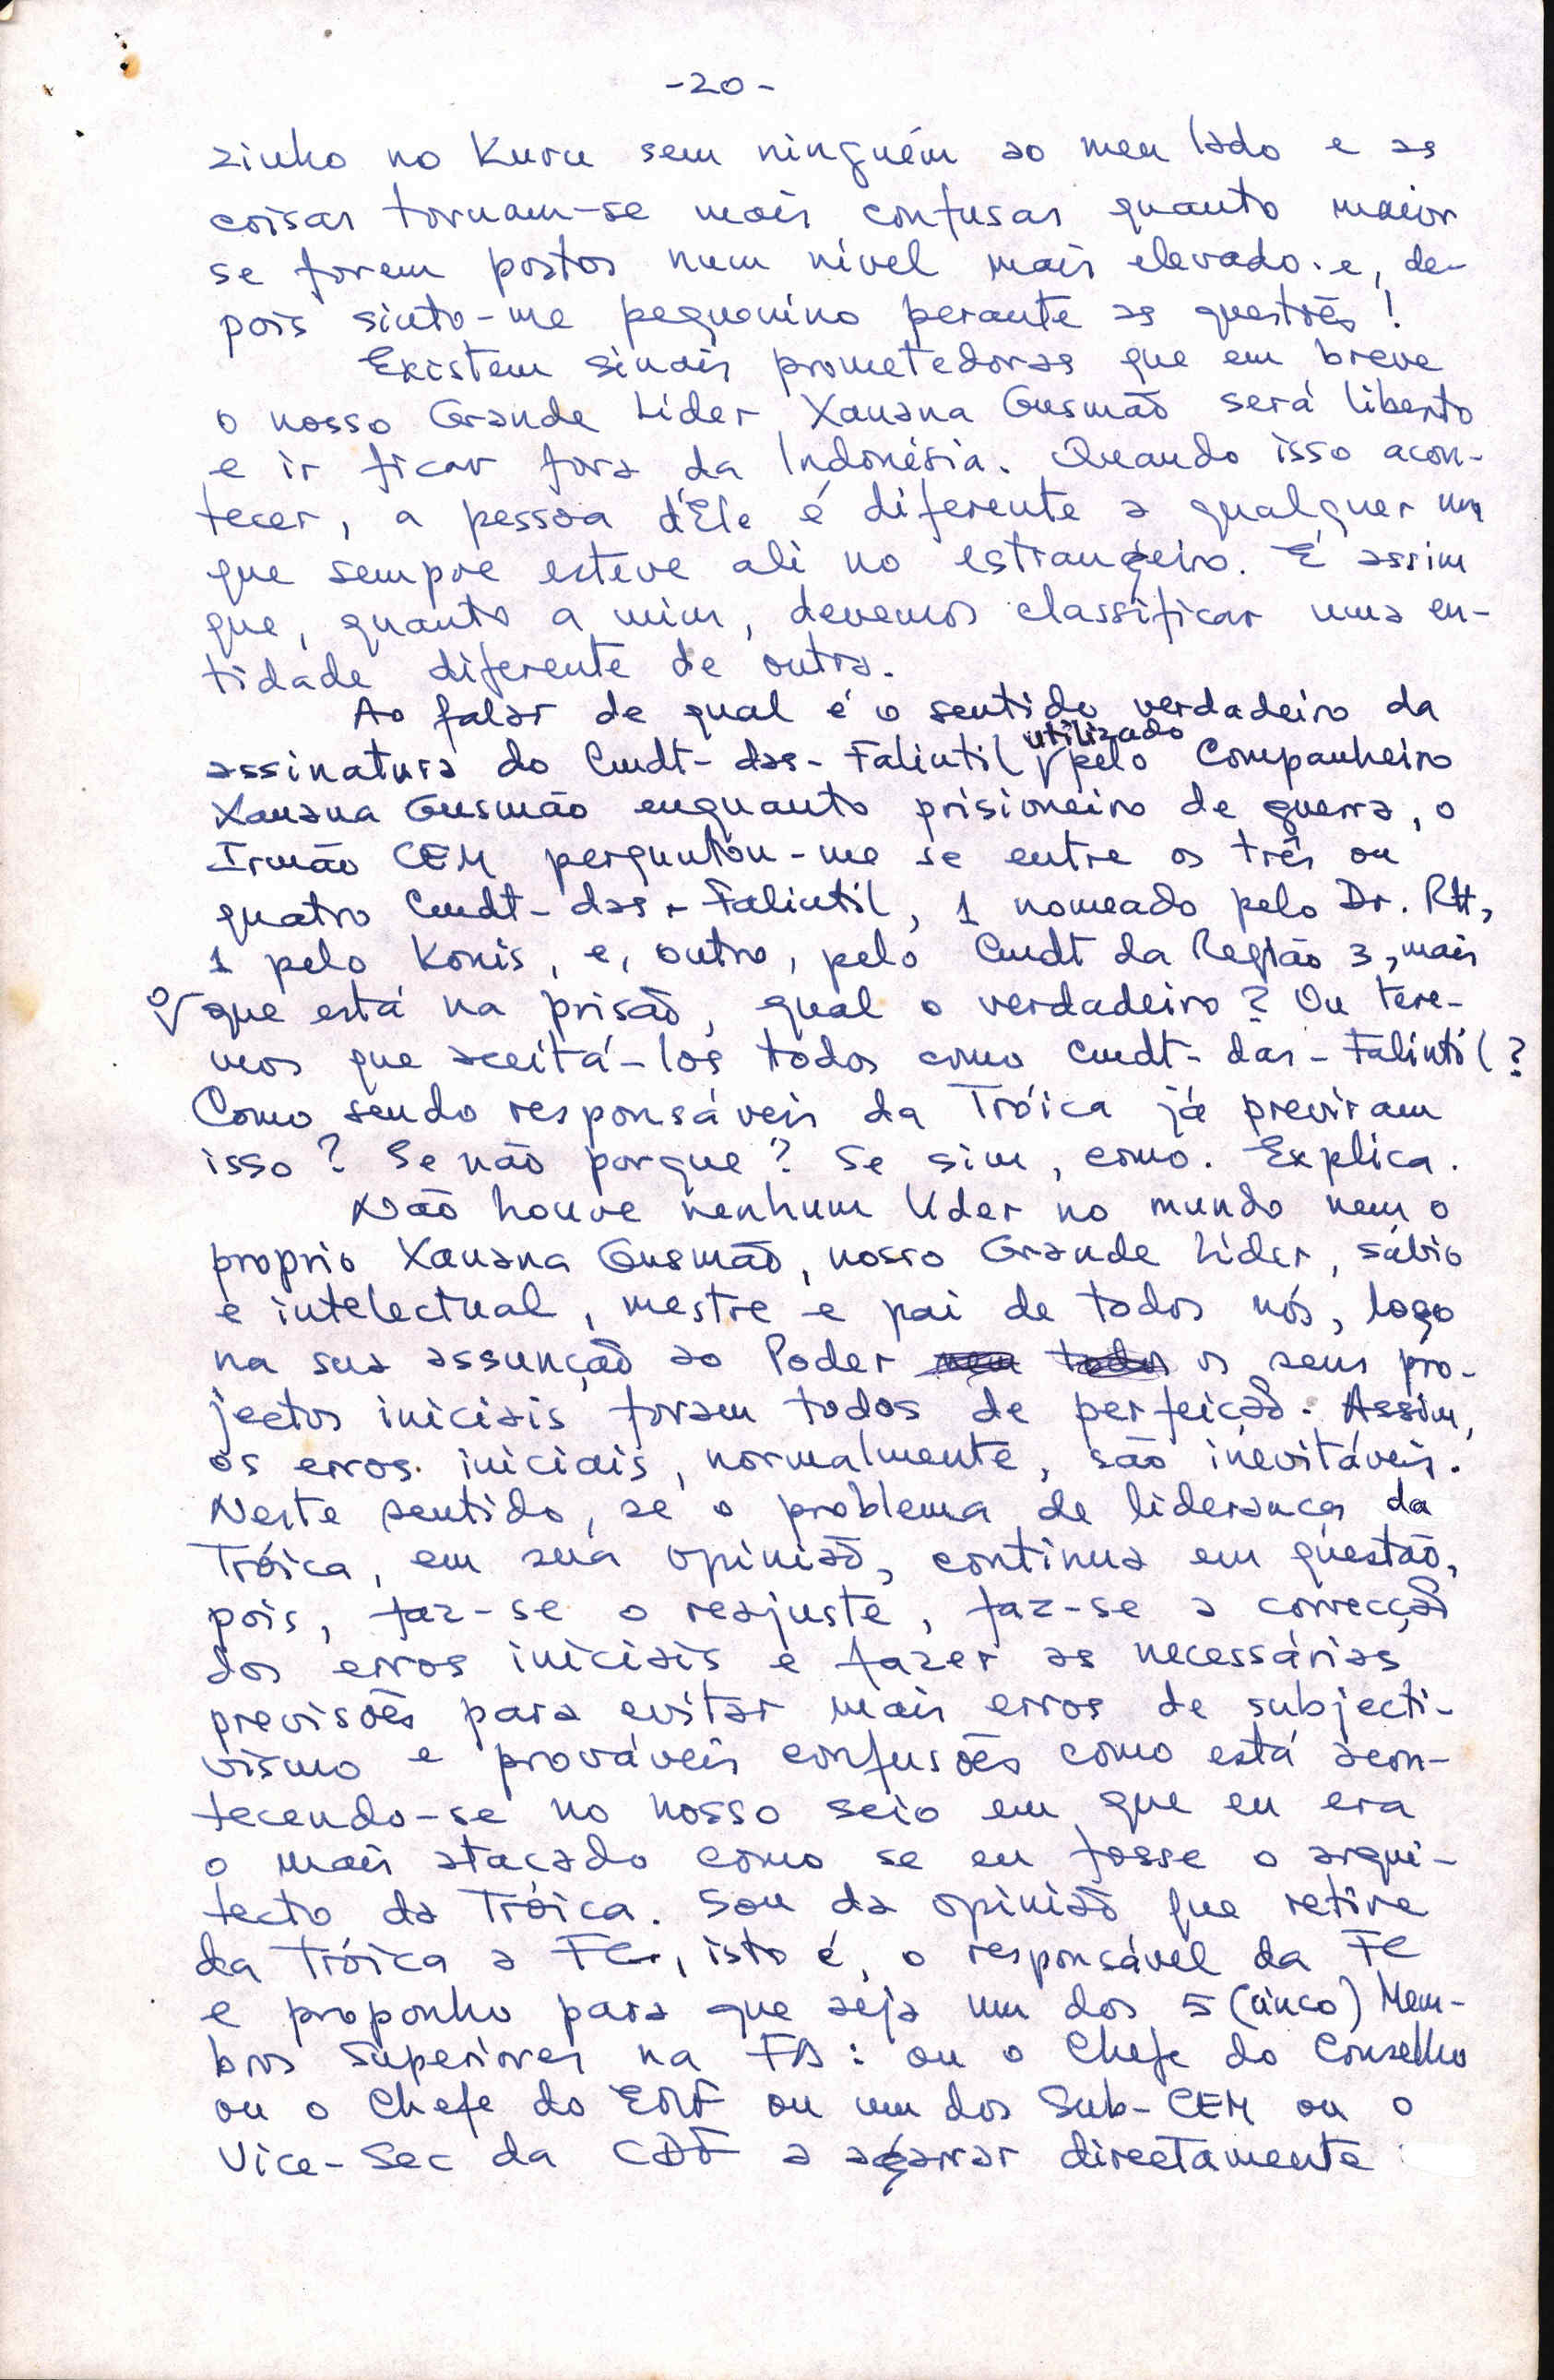 -20-
zinho no Kuru sem ninguém ao meu lado e as
coisas tornam-se mais confusas quanto maior
se forem postos num nível mais elevado e, de-
pois sinto-me pequenino perante as questões!
Existem sinais prometedoras que em breve
o nosso Grande Líder Xanana Gusmão será liberto
e ir ficar fora da Indonésia. Quando isso acon-
tecer, a pessoa d'Ele é diferente a qualquer um
que sempre esteve ali no estrangeiro. É assim
que, quanto a mim, devemos classificar uma en-
tidade diferente de outra.
Ao falar de qual é o sentido verdadeiro da
utilizado
assinatura do Cmdt-das-Falintil pelo Companheiro
Xanana Gusmão enquanto prisioneiro de guerra, o
Irmão CEM perguntou-me se entre os três ou
quatro Cmdt-das-Falintil, 1 nomeado pelo Dr. RH,
1 pelo Konis, e, outro, pelo Cmdt da Região 3, mais
o que está na prisão, qual o verdadeiro? Ou tere-
mos que aceitá-los todos como Cmdt-das-Falintil?
Como sendo responsáveis da Tróica já previram
isso? Se não porque? Se sim, como. Explica.
Não houve nenhum líder no mundo nem o
proprio Xanana Gusmão, nosso Grande Líder, sábio
e intelectual, mestre e pai de todos nós, logo
na sua assunção ao Poder nem todos os seus pro-
jectos iniciais foram todos de perfeição. Assim,
os erros iniciais, normalmente, são inevitáveis.
Neste sentido, se o problema de liderança da
Tróica, em sua opinião, continua em questão,
pois, faz-se o reajuste, faz-se a correcção
dos erros iniciais e fazer as necessárias
previsões para evitar mais erros de subjecti-
vismo e prováveis confusões como está acon-
tecendo-se no nosso seio em que eu era
o mais atacado como se eu fosse o arqui-
tecto da Tróica. Sou da opinião que retire
da Tróica a FC, isto é, o responsável da FC
e proponho para que seja um dos 5 (cinco) Mem-
bros Superiores na FA: ou o Chefe do Conselho
ou o Chefe do EMF ou um dos Sub-CEM ou o
Vice-Sec da CDF a agarrar directamente